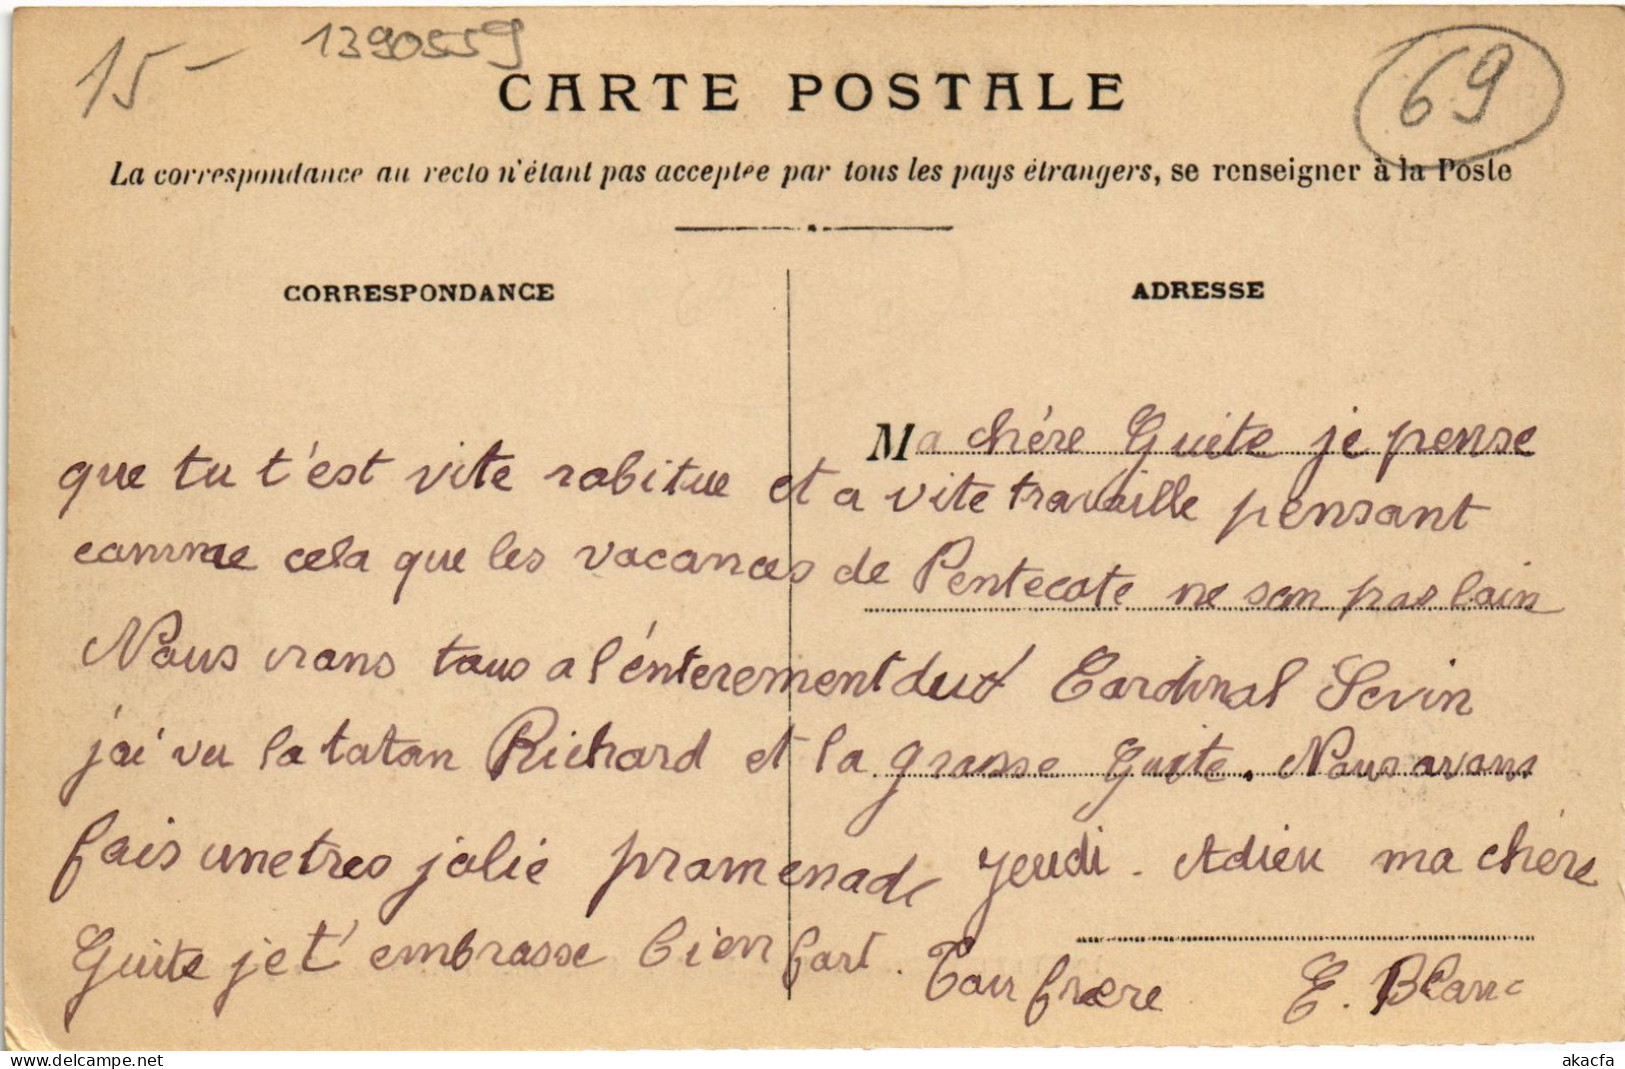 15-
1390559
69
CARTE POSTALE
La correspondance au recto n'étant pas acceptée par tous les pays étrangers, se renseigner à la Poste
CORRESPONDANCE
ADRESSE
Ma chére Guite je pense
que tu t'est vite rabitue et a vite travaille pensant
comme cela que les vacances de Pentecote ne son pas loin
Nous irons tous a l'énterement du Cardinal Sevin
j'ai vu la tatan Richard et la grosse Guite. Nous avons
fais une tres jolie promenade jeudi. Adieu ma chére
Guite je t'embrasse bien fort. Ton frere E. Blanc
akacfa